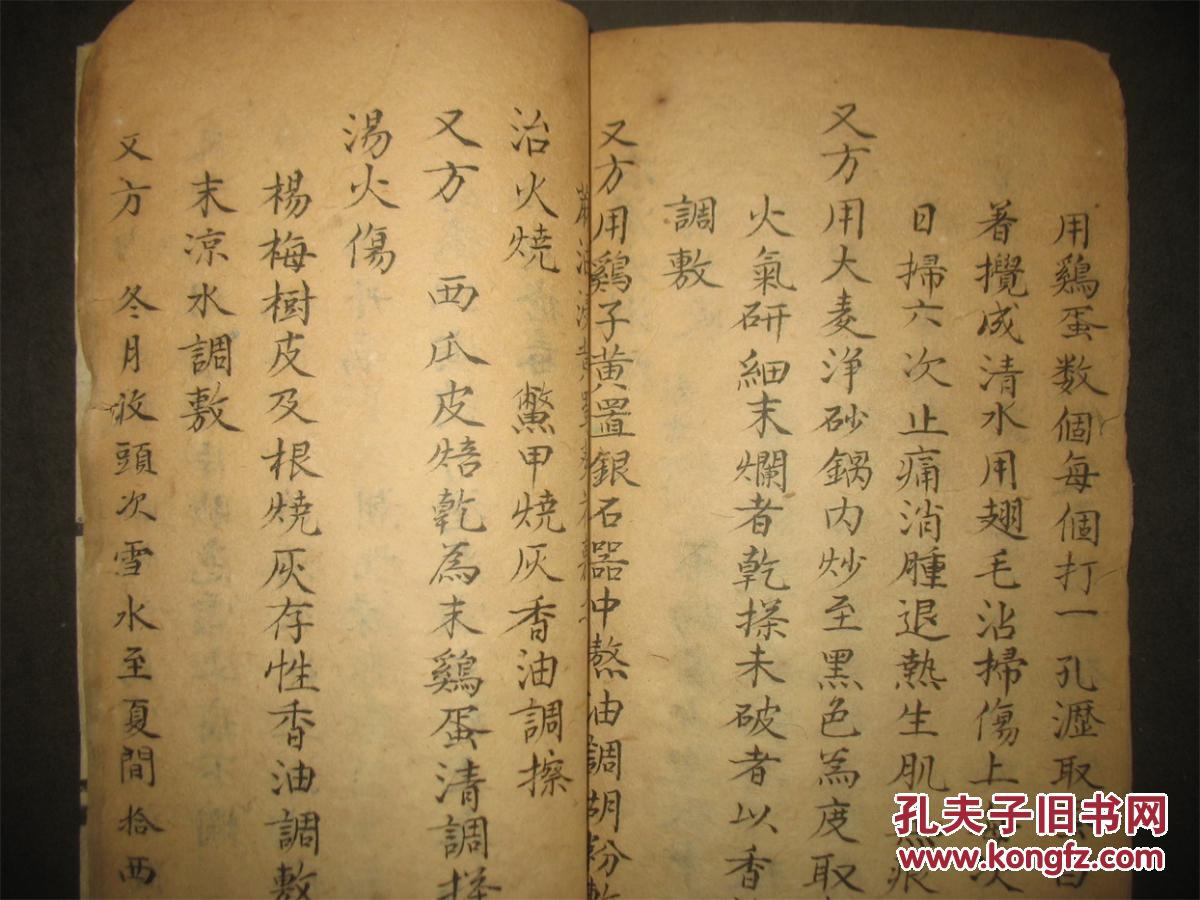 用鷄蛋数個每個打一孔瀝取
箸攪成清水用翅毛沾掃傷上
日掃六次止痛消腫退熱生肌無痕
又方用大麦淨砂鍋内炒至黑色為度取
火氣研細末爛者乾搽未破者以香
調敷
又方用鷄子黄置銀石器中熬油調胡粉敷
治火燒 鱉甲燒灰香油調擦
又方 西瓜皮焙乾為末鷄蛋清調搽
湯火傷
楊梅樹皮及根燒灰存性香油調敷
末凉水調敷
又方 冬月收頭次雪水至夏間拾西
孔夫子旧书网
www.kongfz.com